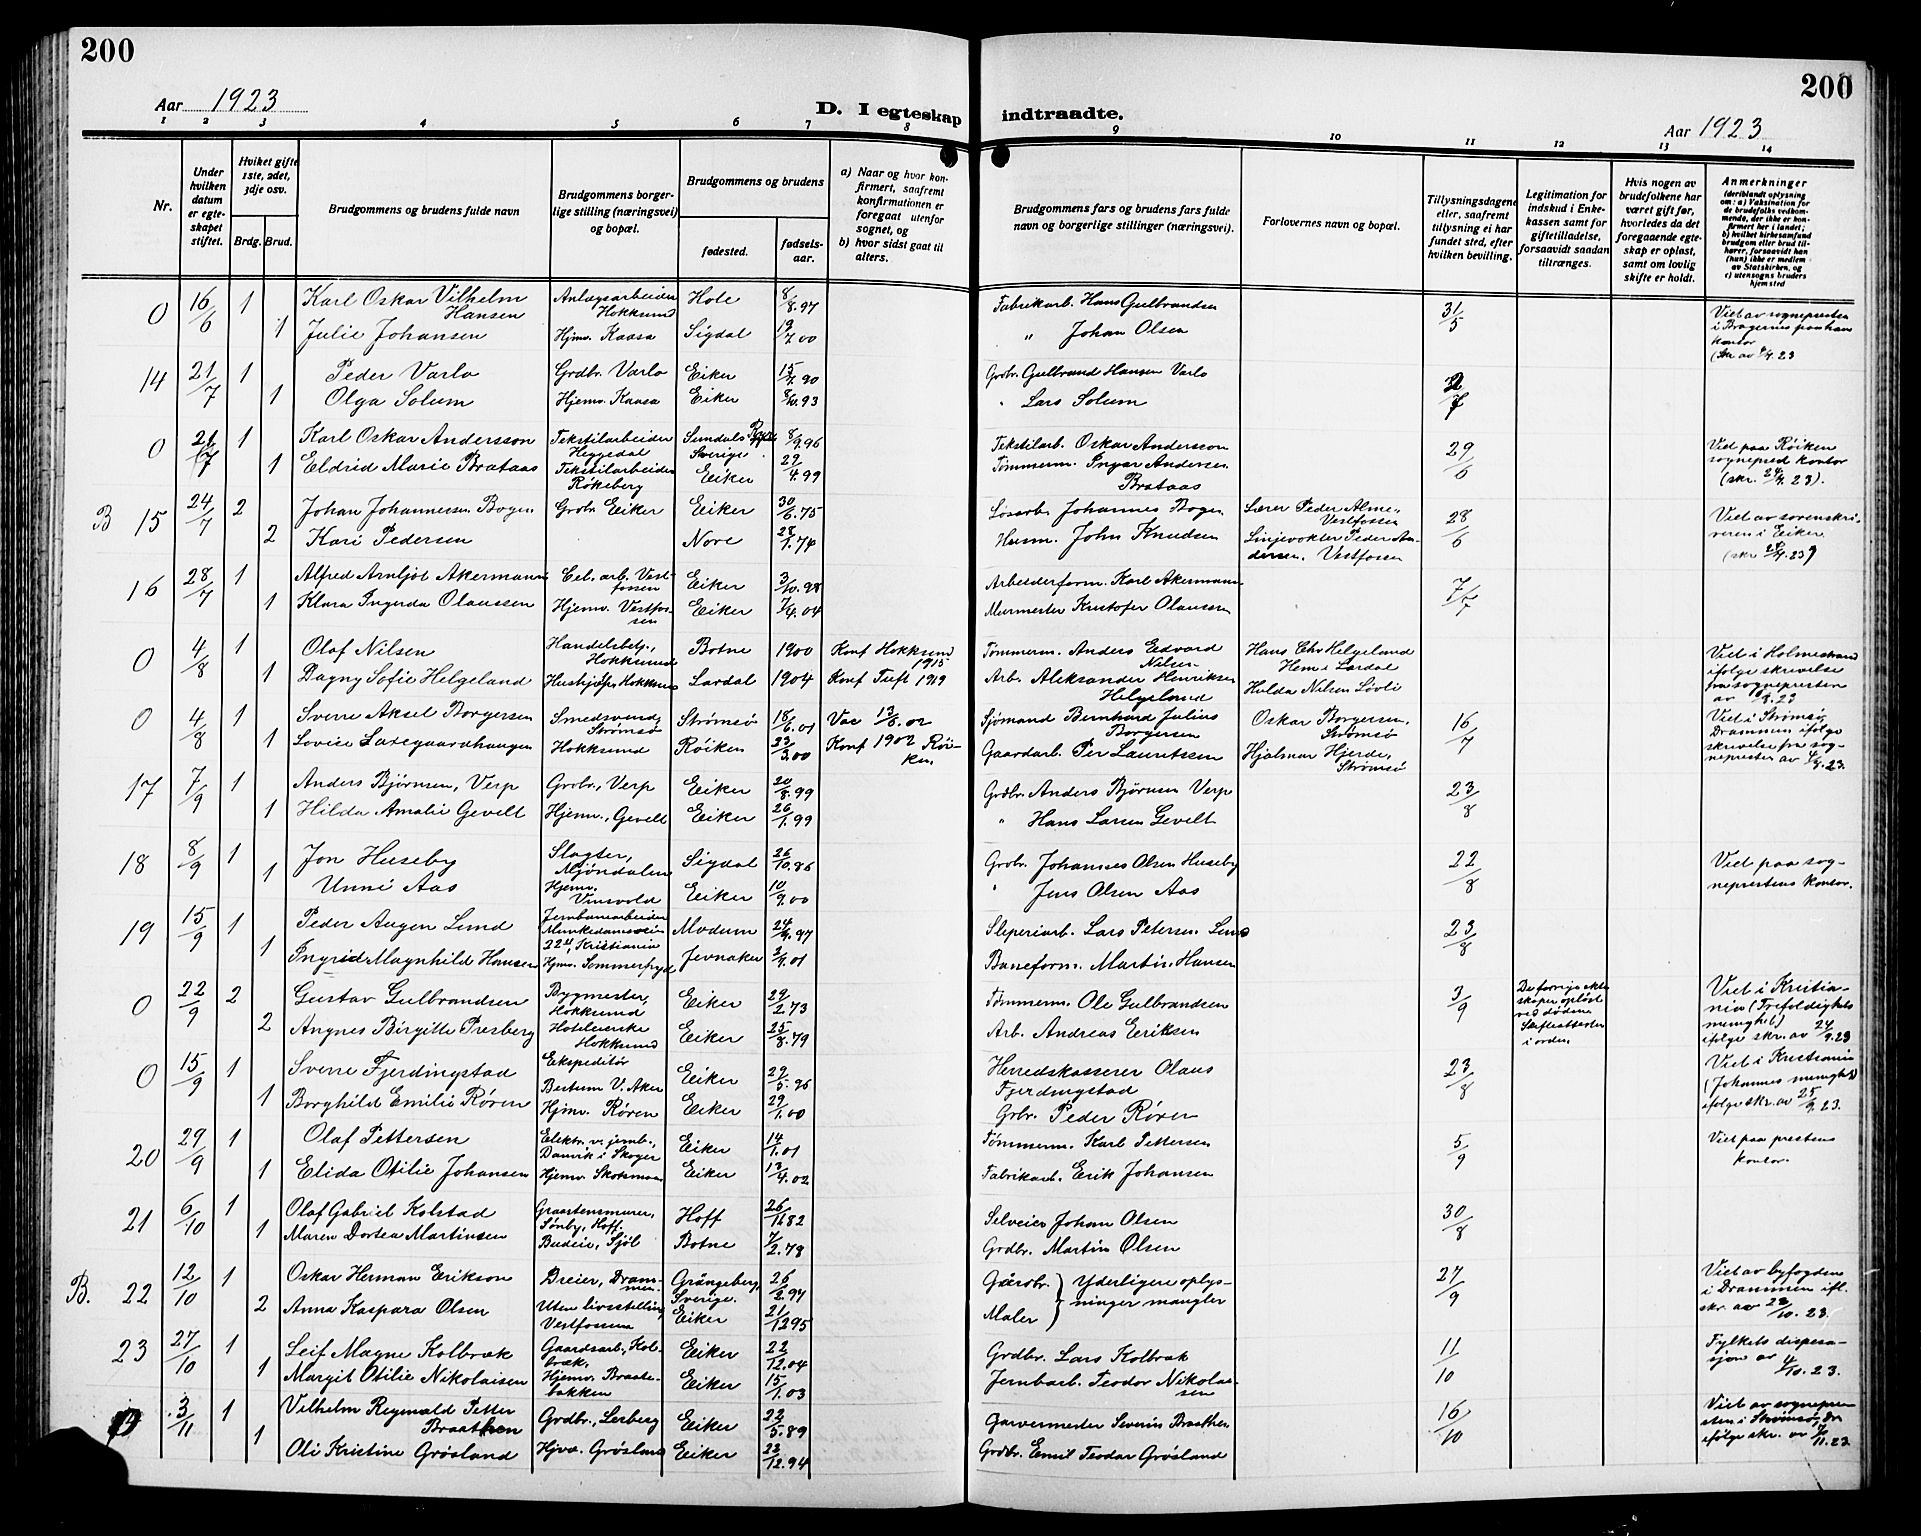 200
Aar 1923
D. I egteskap
1 2 3 4 5 6 7 8
Nr.
Under hvilken datum er egteskapet stiftet.
Hvilket gifte 1ste, 2det, 3dje osv.
Brdg. Brud.
Brudgommens og brudens fulde navn
Brudgommens borgerlige stilling (næringsvei) og bopæl.
Brudgommens og brudens
fødested. fødselsaar.
a) Naar og hvor konfirmert, saafremt konfirmationen er foregaat utenfor sognet, og
b) hvor sidst gaat til alters.
0 16/6 1 Karl Oskar Vilhelm Hansen Anlægsarbeider Hokksund Hole 8/8.97
1 Julie Johansen Hjmv. Kaasa Sigdal 00
14 21/7 1 Peder Varlo Grdbr. Varlo Eiker 15/7.90
1 Olga Solum Hjemv. Kaasa Eiker 8/10.93
0 21/7 1 Karl Oskar Andersson Tekstilarbeider Heggedal Sundals Sverige 8/9.96
1 Eldrid Marie Brataas Tekstilarbeider Røkeberg Eiker 29/4.99
B 15 24/7 2 Johan Johannersen Bogen Grobr. Eiker Eiker 30/6.75
2 Kari Pedersen Nore 28/1.74
16 28/7 1 Alfred Arnljot Akermann Cel. arb. Vestfossen Eiker 3/10.98
1 Klara Ingerda Olaussen Hjemv. Vestfossen Eiker 7/4.04
0 4/8 1 Olaf Nilsen Handelsbetj., Hokksund Botne 1900 Konf Hokksund 1915
1 Dagny Sofie Helgeland Hushjelp, Hokksund Lardal 1904 Konf Tuft 1919
0 4/8 1 Sverre Aksel Borgersen Smedsvend, Strømsø Strømsø 18/6.01 Vac 13/8.02
1 Lovise Hokksund Røiken 23/3.00 Konf 1902 Røiken.
17 7/9 1 Anders Bjørnsen, Verp Grbr., Verp Eiker 20/8.99
1 Hilda Amalie Gevelt Hjemv., Gevelt Eiker 26/1.99
18 8/9 1 Jon Huseby Slagter, Mjøndalen Sigdal 26/10.86
1 Unni Aas Hjemv. Vinsvold Eiker 10/9.00
19 15/9 1 Peder Augen Lund Jernbanearbeider Munkedamsveien 22 Kristiania Modum 24/9.97
1 Ingrid Magnhild Hansen Hjmv. Sommerfryd Jevnaker 01
0 22/9 2 Gustav Gulbrandsen Bygmester, Hokksund Eiker 29/2.73
2 Angnes Birgitte Presberg Hoteleierske Hokksund Eiker 25/8.79
0 15/9 1 Sverre Fjerdingstad Ekspeditør Bestum V. Aker Eiker 29/5.96
1 Borghild Emilie Røren Hjmv. Røren Eiker 29/1.00
20 29/9 1 Olaf Pettersen Elektr. v. jernb., Danvik i Skoger Eiker 14/1.01
1 Elida Otilie Johansen Hjemv. Skotsmoen Eiker 13/4.02
21 6/10 1 Olaf Gabriel Kolstad Graastensmurer, Sønby, Hoff. Hoff 26/11 82
1 Maren Dortea Martinsen Budeie, Sjøl Botne 7/2.78
B. 22 12/10 1 Oskar Herman Erikson Dreier, Drammen. Grängeberg, Sverige. 26/2.97
2 Anna Kaspara Olsen Uten livsstilling, Vestfossen Eiker 21/12 95
23 27/10 1 Leif Magne Kolbræk Gaardsarb., Kolbræk. Eiker 22/12.04
1 Margit Otilie Nikolaisen Hjemv. Braatebakken Eiker 15/1.03
3/11 1 Vilhelm Reginald Petter Braathen Grdbr., Lerberg Eiker 22/5.89
1 Oli Kristine Grøsland Hjva. Grøsland Eiker 22/12.94
200
indtraadte.
Aar 1923
9 10 11 12 13 14
Brudgommens fars og brudens fars fulde navn og borgerlige stillinger (næringsvei).
Forlovernes navn og bopæl.
Tillysningsdagene eller, saafremt tillysning ei har fundet sted, efter hvilken bevilling.
Legitimation for indskud i Enkekassen samt for giftetilladelse, forsaavidt saadan tiltrænges.
Hvis nogen av brudefolkene har været gift før, hvorledes da det foregaaende egteskap er opløst, samt om lovlig skifte er holdt.
Anmerkninger
(deriblandt oplysning om: a) Vaksination for de brudefolks vedkommende, der ikke er konfirmert her i landet; b) hvilket kirkesamfund brudgom eller brud tilhører, forsaavidt han (hun) ikke er medlem av Statskirken, og c) utensogns bruders hjemsted
Fabrikarb. Hans Gulbrandsen 31/5 Viet av sognepresten i Bragernes paa hans kontor
„ Johan Olsen
Grbr. Gulbrand Hansen Varlo
" Lars Solum
Tekstilarb. Oskar Andersson 29/6 Viet paa Røiken sogneprest kontor (skr. 24/7.23).
Tømmerm. Ingar Andersen Brataas
Løsarb. Johannes Bogen Lærer Peder Alme, Vestfossen 28/6 Viet av sorenskriveren i Eiker
Husm. John Knudsen Linjevokter Peder Andersen, Vestfossen
Arbeiderform. Karl Akermann 7/7
Murmester Kristofer Olaussen
Tømmerm. Anders Edvord Nilsen Hans Chr Helgeland Hem i Lardal Viet i Holmestrand ifølge skrivelse fra sognepresten
Arb. Aleksander Henriksen Helgeland Hulda Nilsen Løvli
Sjømand Bernhard Julius Borgersen Oskar Borgersen, Strømsø 16/7 Viet i Strømsø, Drammen ifølge skrivelse fra sogneprester av 23.
Gaardarb. Per Lauritsen Hjalmar Hjerde, Strømsø
Grdbr. Anders Bjørnsen Verp 23/8
" Hans Larsen Gevelt
Grbr. Johannes Olsen Huseby 22/8 Viet paa sogneprestens kontor.
" Jens Olsen Aas
Sleperiarb. Lars Petersen Lund 23/8
Baneform. Martin Hansen
Tømmerm. Ole Gulbrandsen 3/9 De forrige ekteskaper opløst ved døden Skifteattester i orden. Viet i Kristiania (Trefoldighets menighet) ifølge skr. av 24/9.23
Arb. Andreas Eriksen
Herredskasserer Olaus Fjerdingstad 23/8 Viet i Kristiania (Johannes menighet) ifølge skr. av 25/9.23.
Grbr. Peder Røren
Tømmerm. Karl Pettersen 5/9 Viet paa prestens kontor.
Fabrikarb. Erik Johansen
Selveier Johan Olsen 30/8
Grdbr. Martin Olsen
Gårdbr. Maler } Yderligere oplysninger mangler 27/9 Viet av byfogden i Drammen ifl. skr. av 23/10.23.
Grdbr. Lars Kolbræk 11/10 Fylkets dispensasjon av 4/10.23.
Jernbarb. Teodor Nikolaisen
Garvermester Severin Braathen 16/10 Viet av sognepresten i Strømsø, Dr ifølge skr. av 11.23
Grdbr. Emil Teodor Grøsland